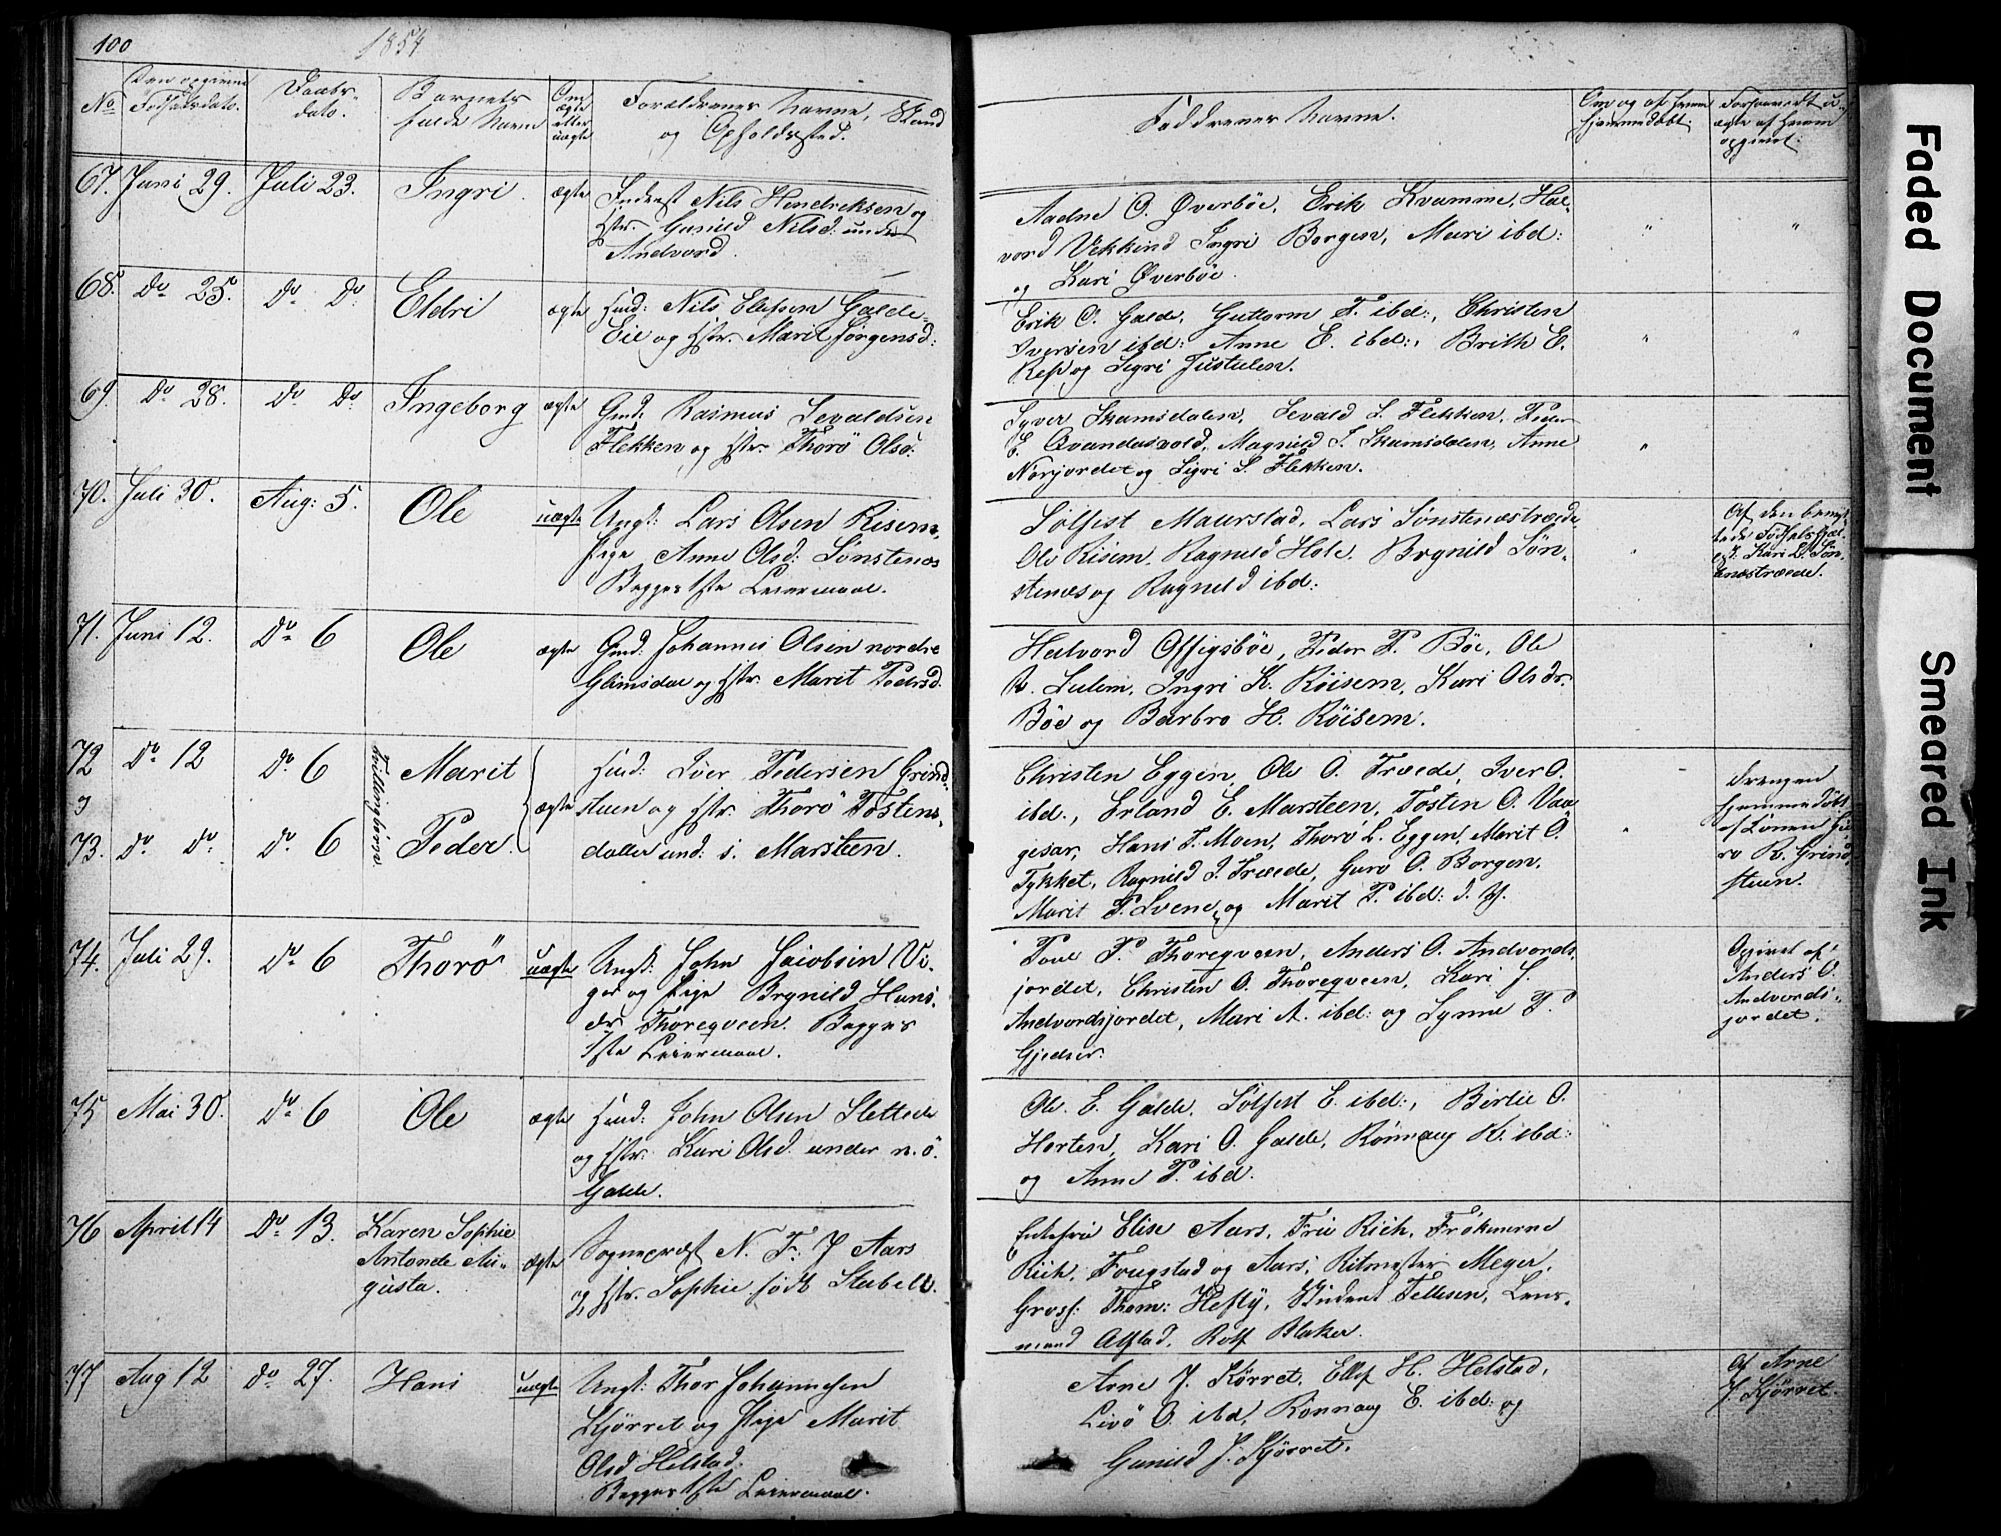 100
1854
No
Den opgivne
Fødselsdato.
Daabs-
dato.
Barnets
fulde Navn
Om
ægte
eller
uægte
Forældrenes Navne, Stand
og Opholdssted.
Faddrenes Navne.
Om og af hvem
hjemmedøbt.
67. Juni 29. Juli 23. Ingri ægte
Inderst Nils Hendriksen og
Hstr. Gunild Nilsd. under
Andvord.
Aadne O. Øverbøe, Erik Kvamme, Hal-
vord Vekkind Ingri Borgen, Mari ibd:
og Kari Øverbøe.
" "
68. Do 25. Do Do Eldri ægte
Husd: Nils Elefsen Galde-
Eie og Hstr. Marit Jørgensd:
Erik O. Galde, Guttorm T. ibd:, Christen
Iversen ibd: Anne E. ibd:, Brith E.
og Sigri Justulen.
" "
69. Do 28. Do Do Ingeborg ægte
Gmd: Rasmus Sevaldsen
Flekken og Hstr. Thorø Olsd.
Syver Skamsdalen, Sevald S. Flekken, Peder
E. Qvandesvold, Magnild S. Skamsdalen, Anne
Norjordet og Sigri S. Flekken.
"
70. Juli 30. Aug: 5. Ole uægte
Ungk: Lars Olsen Risem,
Pige Anne Olsd: Sønstenes
Begges 1ste Leiermaal.
Sølfest Maurstad, Lars Sønstenestræde,
Ole Risem, Ragnild Hole, Brynild Søn-
stenes og Ragnild ibd:
"
Kari L. Søn-
stenestræede.
71. Juni 12. Do 6 Ole ægte
Gmd: Johannes Olsen nordre
Glimsdal og Hstr. Marit Pedersd.
Halvord Offigsbøe, Peder P. Bøe, Ole
R. Sulem, Ingri K. Røisem, Kari Olsdr.
Bøe og Barbro H. Røisem.
72 Do 12 Do 6 Tvillingbørn Marit
og
73. Do Do Do 6 Peder. ægte
Husd: Iver Pedersen Grind-
stuen og Hstr. Thorø Tostens-
datter und: s. Marsteen.
Christen Eggen, Ole O. Træede, Iver O.
ibd., Erland E. Marsteen, Tosten O. Vaa-
gesar, Hans T. Moen, Thorø L. Eggen, Marit O.
Tykket, Ragnild I. Træede, Guro O. Borgen,
Marit P. Svene, og Marit P. ibd: d. Y.
"
Drengen
hjemmedøbt
af Konen Gu-
ro R. Grind-
stuen.
74. Juli 29. Do 6 Thorø uægte
Ungk: John Jacobsen Vi-
ger og Pige Brynild Hans-
dr. Thoregveen. Begges
1ste Leiermaal.
Poul P. Thoregveen, Anders O. Andvords-
jordet, Christen O. Thoregveen, Kari J.
Andvordsjordet, Mari A. ibd: og Synne P.
Gjedser.
Opgivet af
Anders O.
Andvords-
jordet.
75 Mai 30. Do 6 Ole ægte
Husd: John Olsen Slettede
og Hstr. Kari Olsd. under n. ö.
Galde.
Ole E. Galde, Sølfest E. ibd:, Bertil O.
Horten, Kari O. Galde, Rønnaug K. ibd:
og Anne P. ibd.
76 April 14 Do 13. Karen Sophie
Antonde Au-
gusta. ægte
Sognepræst N. F. J. Aars
og Hstr. Sophie født Stabell.
Enkefru Elise Aars, Fru Rich, Frøknerne
Rich, Fougstad og Aars, Ritmester Meyer,
Gross: Thom: Heftÿ, Student Tellesen, Lens-
mand Alstad, Rolf Blaker.
77 Aug 12 Do 27. Hans uægte
Ungk: Thor Johannesen
Kjørret og Pige Marit
Olsd Helstad.
Begges 1ste Leiermaal.
Arne J. Kørret, Ellef H. Helstad,
Livø O. ibd, Rønnaug E. ibd: og
Gunild J. Kjørret.
Af Arne
J. Kjørret.
Faded Document
Smeared Ink